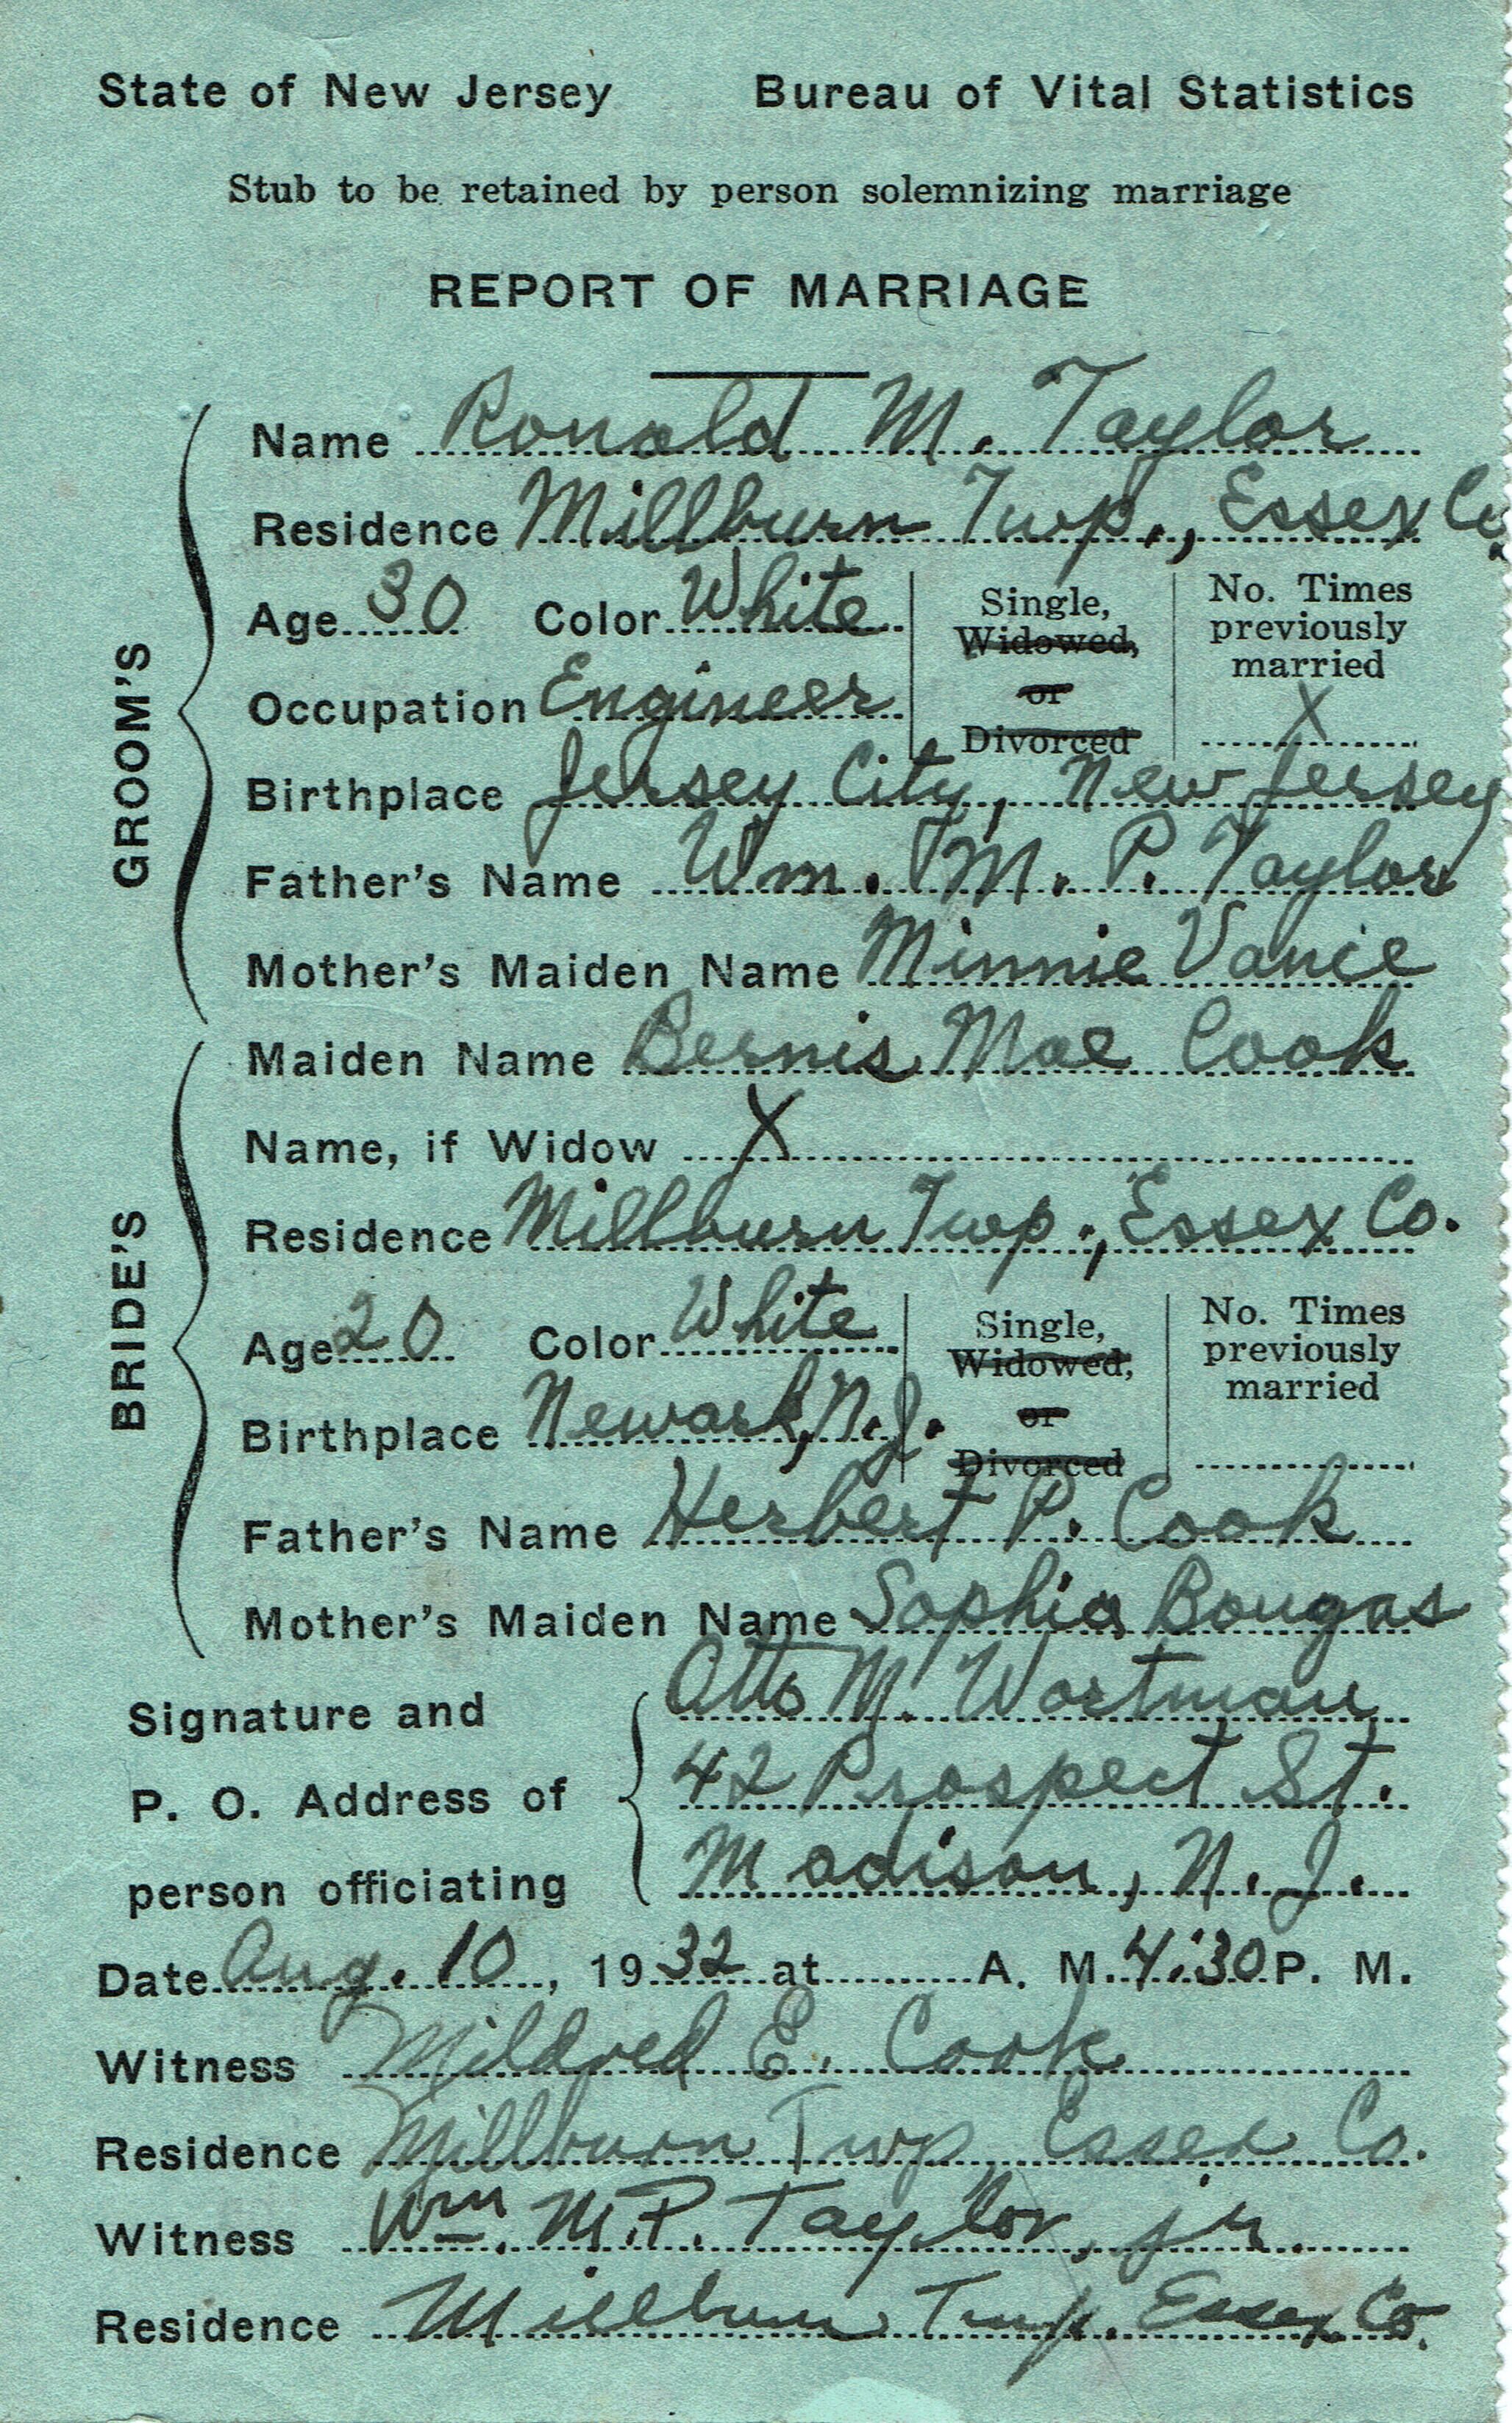 State of New Jersey Bureau of Vital Statistics
Stub to be retained by person solemnizing marriage
REPORT OF MARRIAGE
GROOM'S
Name Ronald M. Taylor
Residence Millburn Twp., Essex Co.
Age 30 Color White
Single, Widowed, or Divorced
No. Times previously married X
Occupation Engineer
Birthplace Jersey City, New Jersey
Father's Name Wm. M. P. Taylor
Mother's Maiden Name Minnie Vance
BRIDE'S
Maiden Name Bernis Mae Cook
Name, if Widow X
Residence Millburn Twp., Essex Co.
Age 20 Color White
Single, Widowed, or Divorced
No. Times previously married
Birthplace Newark, N.J.
Father's Name Herbert P. Cook
Mother's Maiden Name Sophia Bougas
Signature and Otto M. Wortman
P. O. Address of 42 Prospect St.
person officiating Madison, N. J.
Date Aug. 10, 1932 at A. M. 4:30 P. M.
Witness Mildred E. Cook
Residence Millburn Twp Essex Co.
Witness Wm. M.P. Taylor, jr.
Residence Millburn Twp. Essex Co.